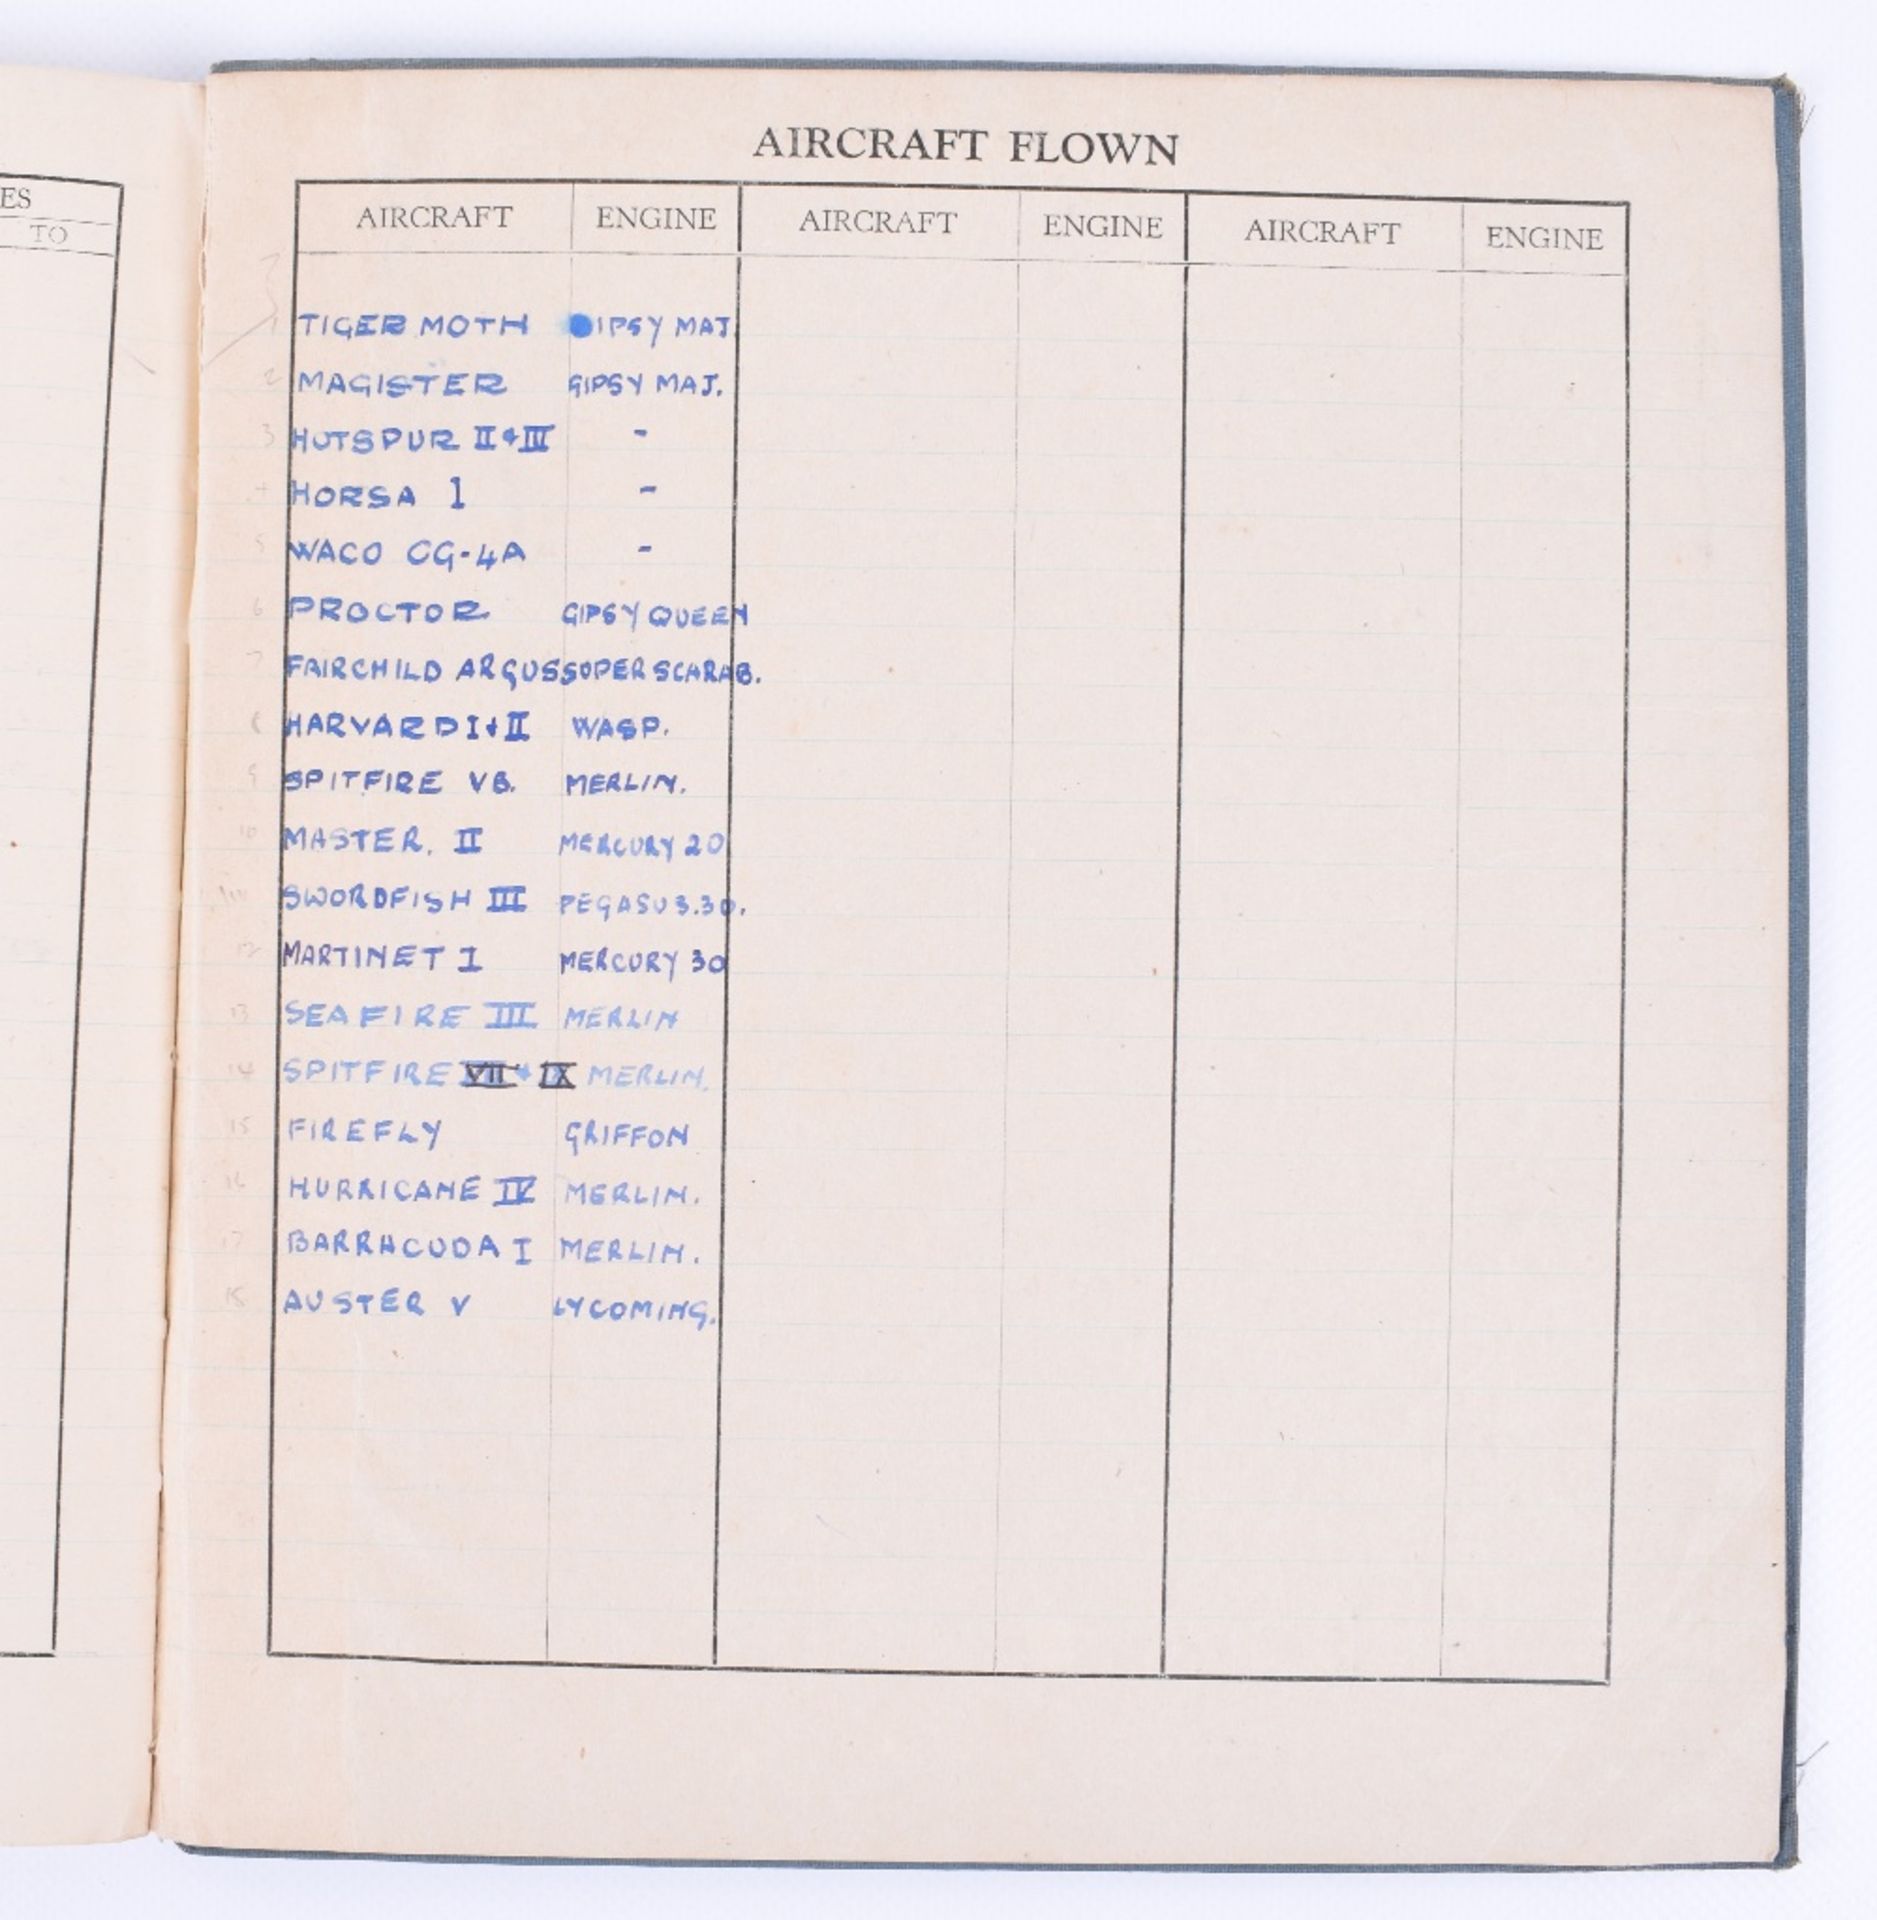 ES
TO
AIRCRAFT FLOWN
AIRCRAFT ENGINE AIRCRAFT ENGINE AIRCRAFT ENGINE
1 TIGER MOTH GIPSY MAJ.
2 MAGISTER GIPSY MAJ.
3 HOTSPUR II & III -
4 HORSA 1 -
5 WACO CG-4A -
6 PROCTOR GIPSY QUEEN
7 FAIRCHILD ARGUS SUPER SCARAB.
8 HARVARD I & II WASP.
9 SPITFIRE VB. MERLIN.
10 MASTER. II MERCURY 20
11 SWORDFISH III PEGASUS.30.
12 MARTINET I MERCURY 30
13 SEAFIRE III MERLIN
14 SPITFIRE VII & IX MERLIN.
15 FIREFLY GRIFFON
16 HURRICANE IV MERLIN.
17 BARRACUDA I MERLIN.
18 AUSTER V LYCOMING.